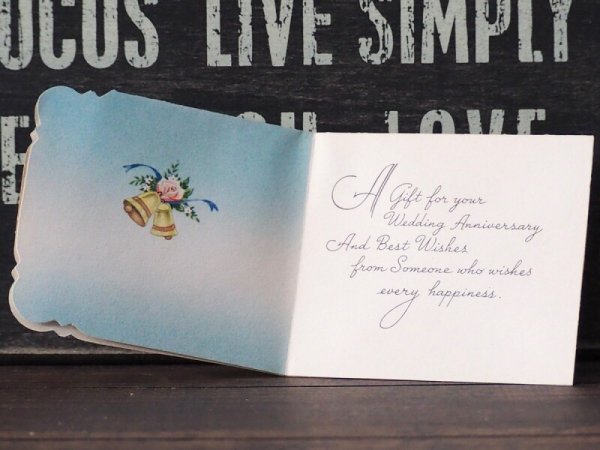 OCUS LIVE SIMPLY
LOVE
A Gift for your
Wedding Anniversary
And Best Wishes
from Someone who wishes
every happiness.